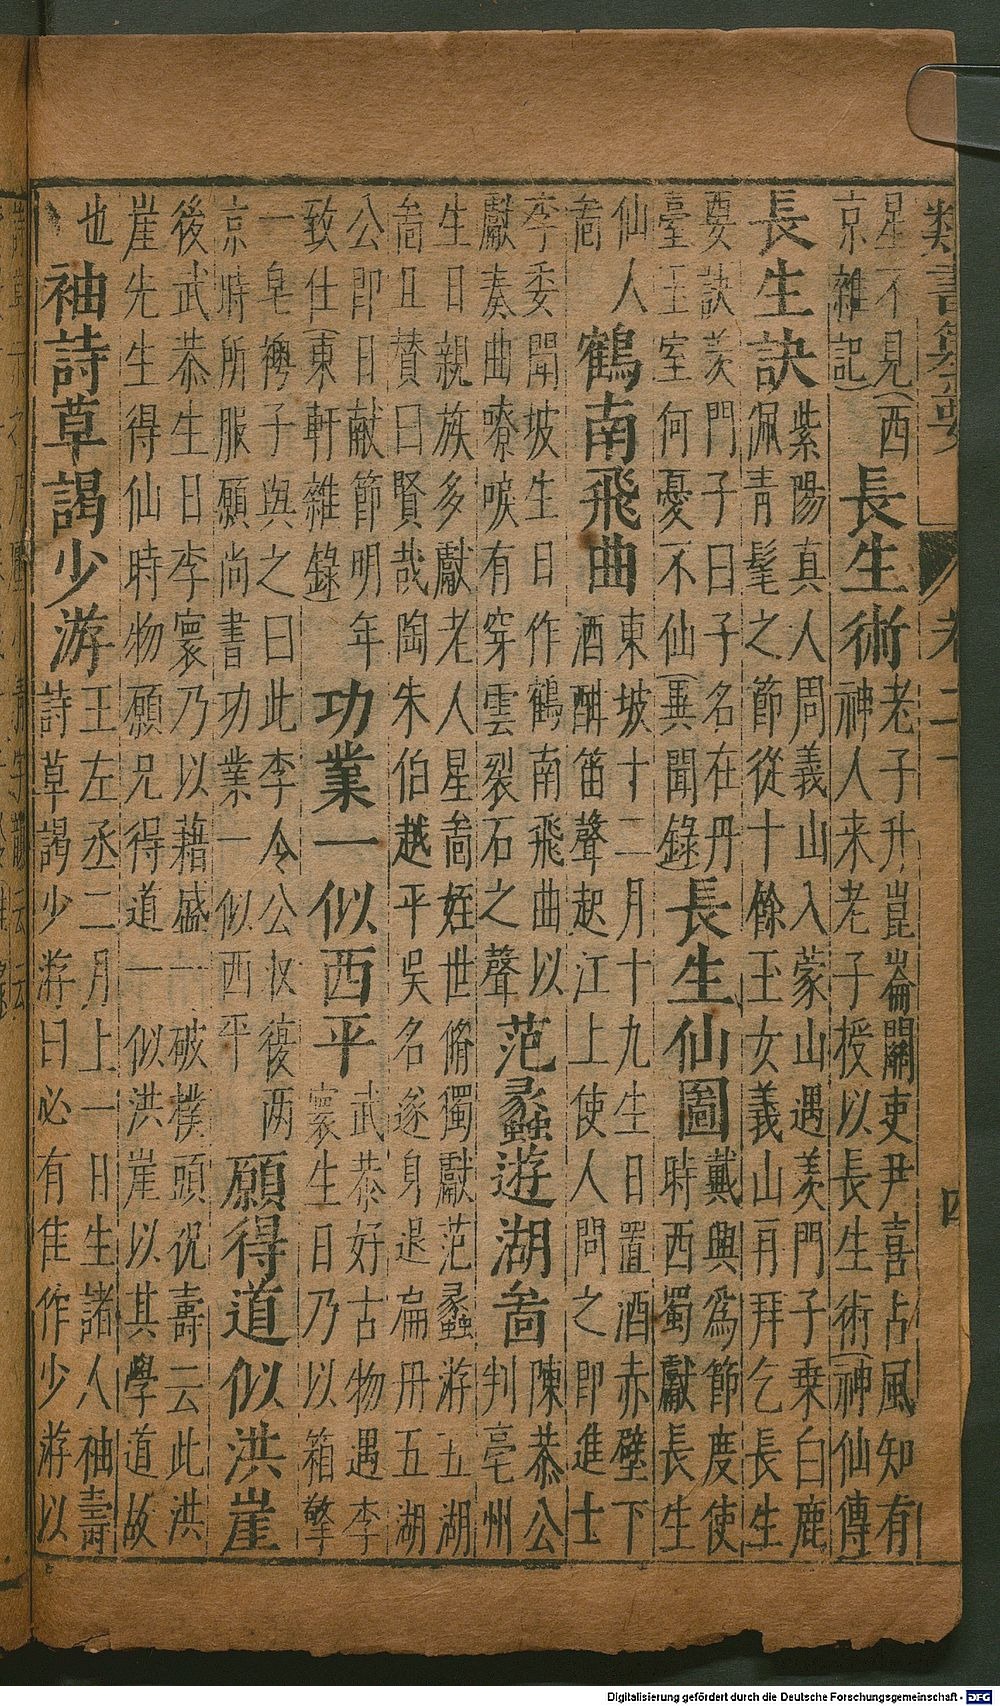 類書纂要 卷二 四
星不見(西
京雜記)
長生術
老子升崑崙關吏尹喜占風知有
神人来老子授以長生術(神仙傳
長生訣
紫陽真人周義山入蒙山遇羡門子乗白鹿
佩青髦之節從十餘玉女義山再拜乞長生
要訣羡門子曰子名在丹
臺玉室何憂不仙(異聞錄
長生仙圖
戴興為節度使
時西蜀獻長生
仙人
啚
鶴南飛曲
東坡十二月十九生日置酒赤壁下
酒酣笛聲起江上使人問之即進士
李委聞坡生日作鶴南飛曲以
獻奏曲嘹唳有穿雲裂石之聲
范蠡遊湖啚
陳恭公
判亳州
生日親族多獻老人星啚姪世脩獨獻范蠡游五湖
啚且賛曰賢哉陶朱伯越平吳名遂身退扁舟五湖
公即日献節明年
致仕(東軒雜錄)
功業一似西平
武恭好古物遇李
寰生日乃以箱擎
一皂襖子與之曰此李令公収復两
京時所服願尚書功業一似西平
願得道似洪崖
後武恭生日李寰乃以藉盛一破樸頭祝壽云此洪
崖先生得仙時物願兄得道一似洪崖以其學道故
也
袖詩草謁少游
王左丞二月上一日生諸人袖壽
詩草謁少游曰必有佳作少游以
Digitalisierung gefördert durch die Deutsche Forschungsgemeinschaft - DFG